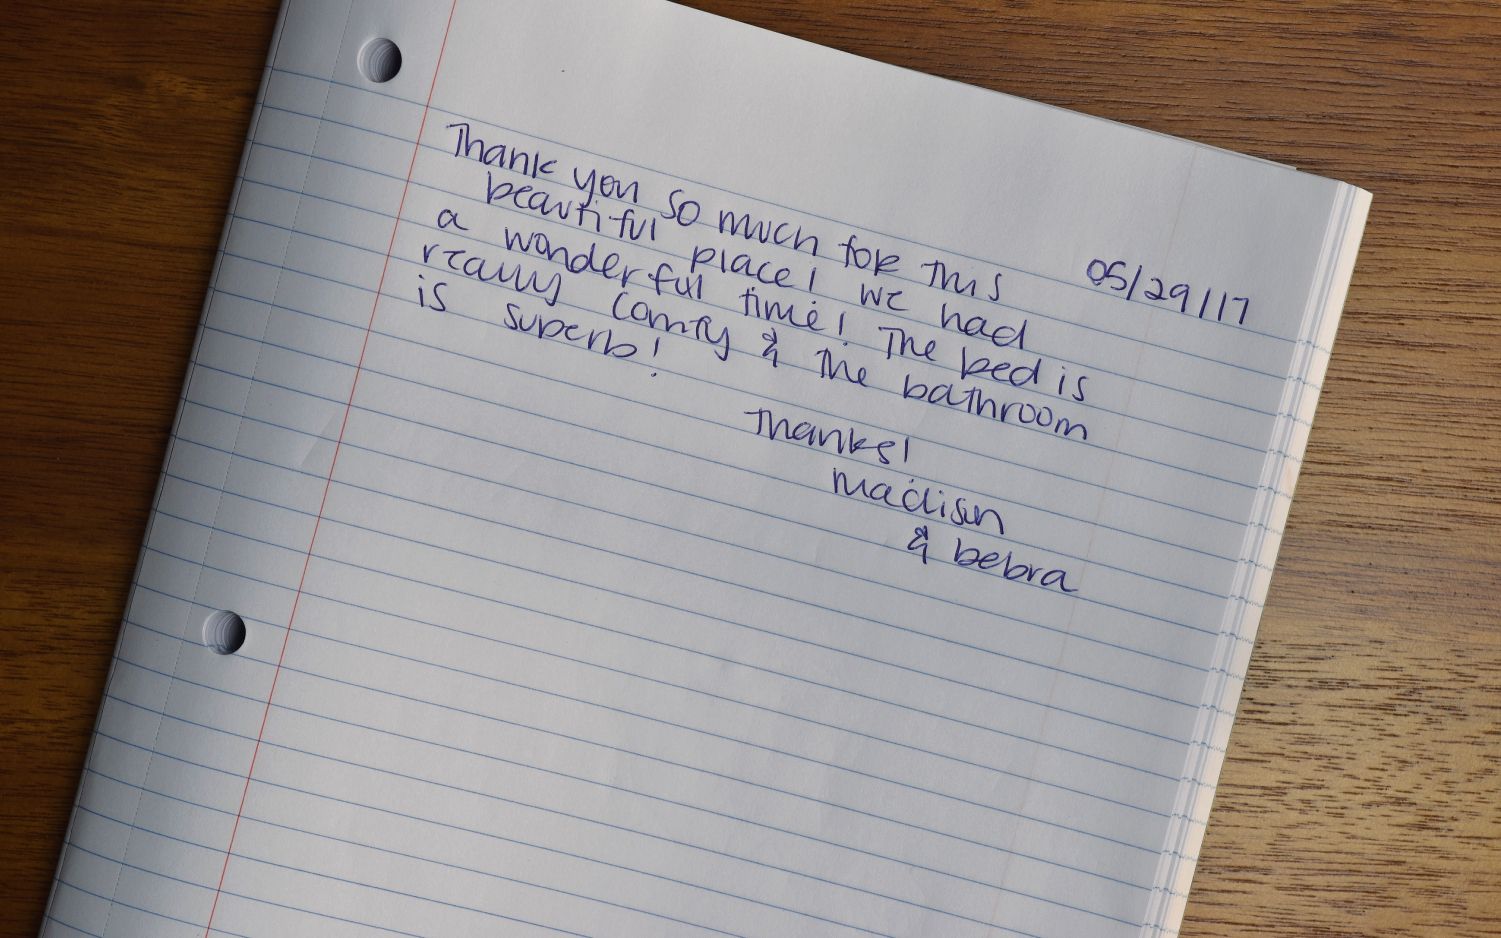 05/29/17
Thank you so much for this
beautiful place! We had
a wonderful time! The bed is
really comfy & the bathroom
is superb!
Thanks!
Madison
& bebra